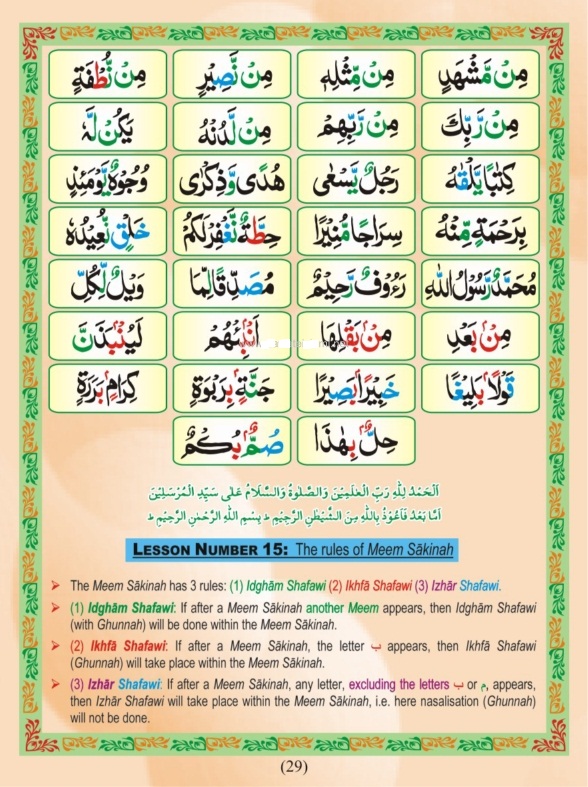 مِنْ مَّشْهَدِ مِنْ مِّثْلِهٖ مِنْ نَّصِيْرٍ مِنْ نُّطْفَةٍ
مِنْ رَّبِّكَ مِنْ رَّبِّهِمْ مِنْ لَّدُنْهُ يَكُنْ لَّهٗ
كِتٰبًا يَّلْقٰىهُ رَجُلٌ يَّسْعٰى هُدًى وَّذِكْرٰى وُجُوْهٌ يَّوْمَئِذٍ
بِرَحْمَةٍ مِّنْهُ سِرَاجًا مُّنِيْرًا حِطَّةٌ نَّغْفِرْ لَكُمْ خَلْقٍ نُّعِيْدُهٗ
مُحَمَّدٌ رَّسُوْلُ اللّٰهِ رَءُوْفٌ رَّحِيْمٌ مُصَدِّقًا لِّمَا وَيْلٌ لِّكُلِّ
مِنْۢ بَعْدِ مِنْۢ بَقْلِهَا اَنْۢبِئْهُمْ لَيُنْۢبَذَنَّ
قَوْلًاۢ بَلِيْغًا خَبِيْرًاۢ بَصِيْرًا جَنَّةٍۭ بِرَبْوَةٍ كِرَامٍۭ بَرَرَةٍ
حِلٌّۢ بِهٰذَا صُمٌّۢ بُكْمٌ
اَلْحَمْدُ لِلّٰهِ رَبِّ الْعٰلَمِيْنَ وَالصَّلٰوةُ وَالسَّلَامُ عَلٰى سَيِّدِ الْمُرْسَلِيْنَ
اَمَّا بَعْدُ فَاَعُوْذُ بِاللّٰهِ مِنَ الشَّيْطٰنِ الرَّجِيْمِ ط بِسْمِ اللّٰهِ الرَّحْمٰنِ الرَّحِيْمِ ط
LESSON NUMBER 15: The rules of Meem Sākinah
➢ The Meem Sākinah has 3 rules: (1) Idghām Shafawi (2) Ikhfā Shafawi (3) Izhār Shafawi.
➢ (1) Idghām Shafawi: If after a Meem Sākinah another Meem appears, then Idghām Shafawi
(with Ghunnah) will be done within the Meem Sākinah.
➢ (2) Ikhfā Shafawi: If after a Meem Sākinah, the letter ب appears, then Ikhfā Shafawi
(Ghunnah) will take place within the Meem Sākinah.
➢ (3) Izhār Shafawi: If after a Meem Sākinah, any letter, excluding the letters ب or م, appears,
then Izhār Shafawi will take place within the Meem Sākinah, i.e. here nasalisation (Ghunnah)
will not be done.
(29)